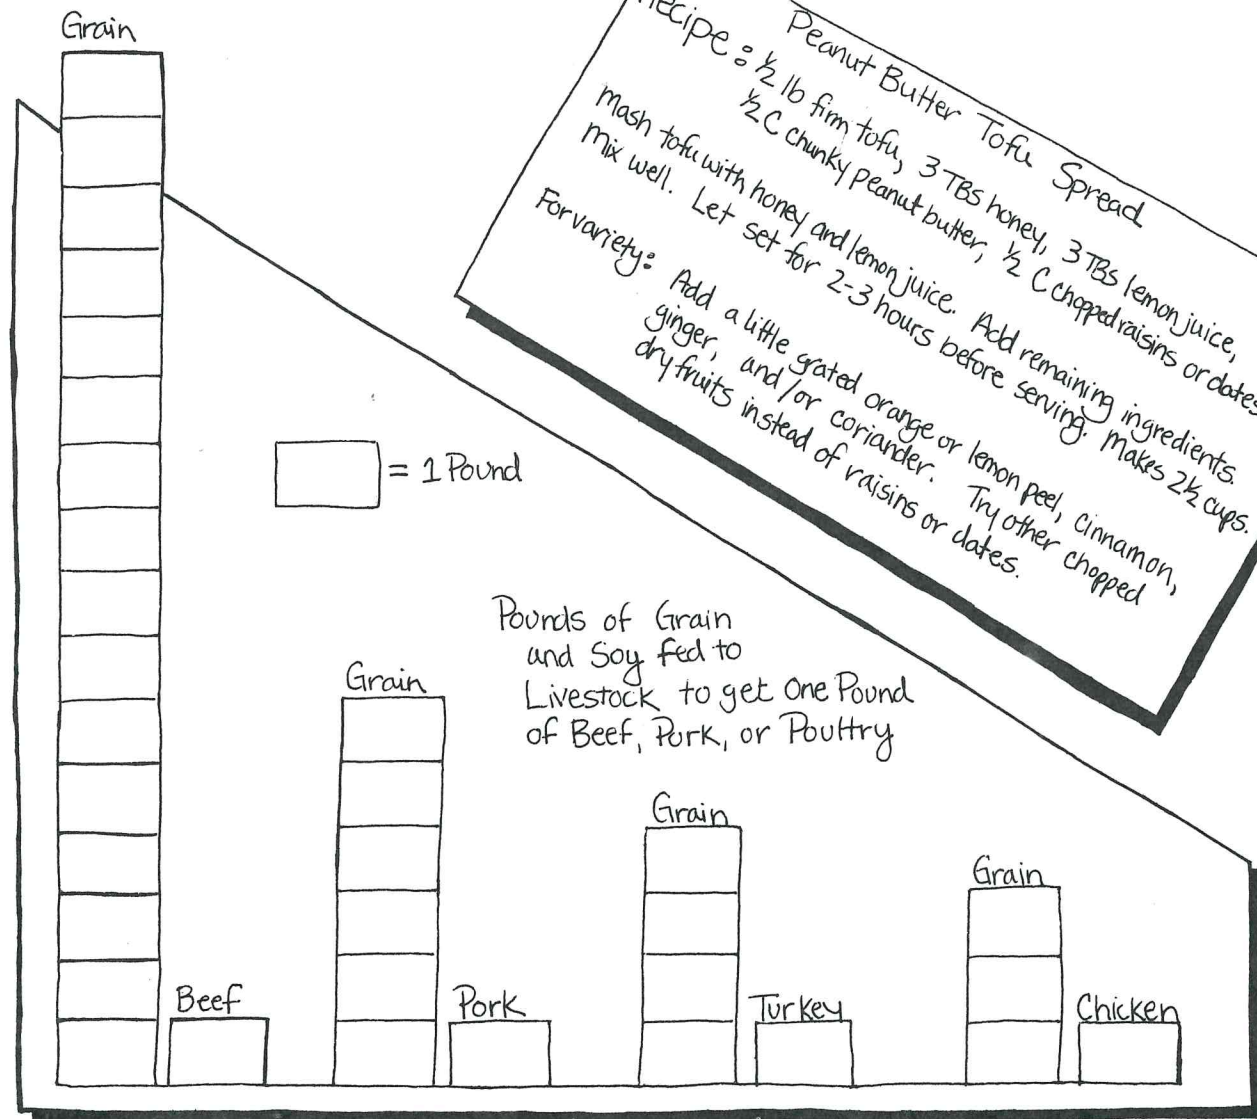 Peanut Butter Tofu Spread
Recipe: ½ lb firm tofu, 3 TBS honey, 3 TBS lemon juice,
½ C chunky peanut butter, ½ C chopped raisins or dates
Mash tofu with honey and lemon juice. Add remaining ingredients.
Mix well. Let set for 2-3 hours before serving. Makes 2½ cups.
For variety: Add a little grated orange or lemon peel, cinnamon,
ginger, and/or coriander. Try other chopped
dry fruits instead of raisins or dates.
Grain
= 1 Pound
Pounds of Grain
and Soy fed to
Livestock to get One Pound
of Beef, Pork, or Poultry
Grain
Grain
Grain
Beef
Pork
Turkey
Chicken